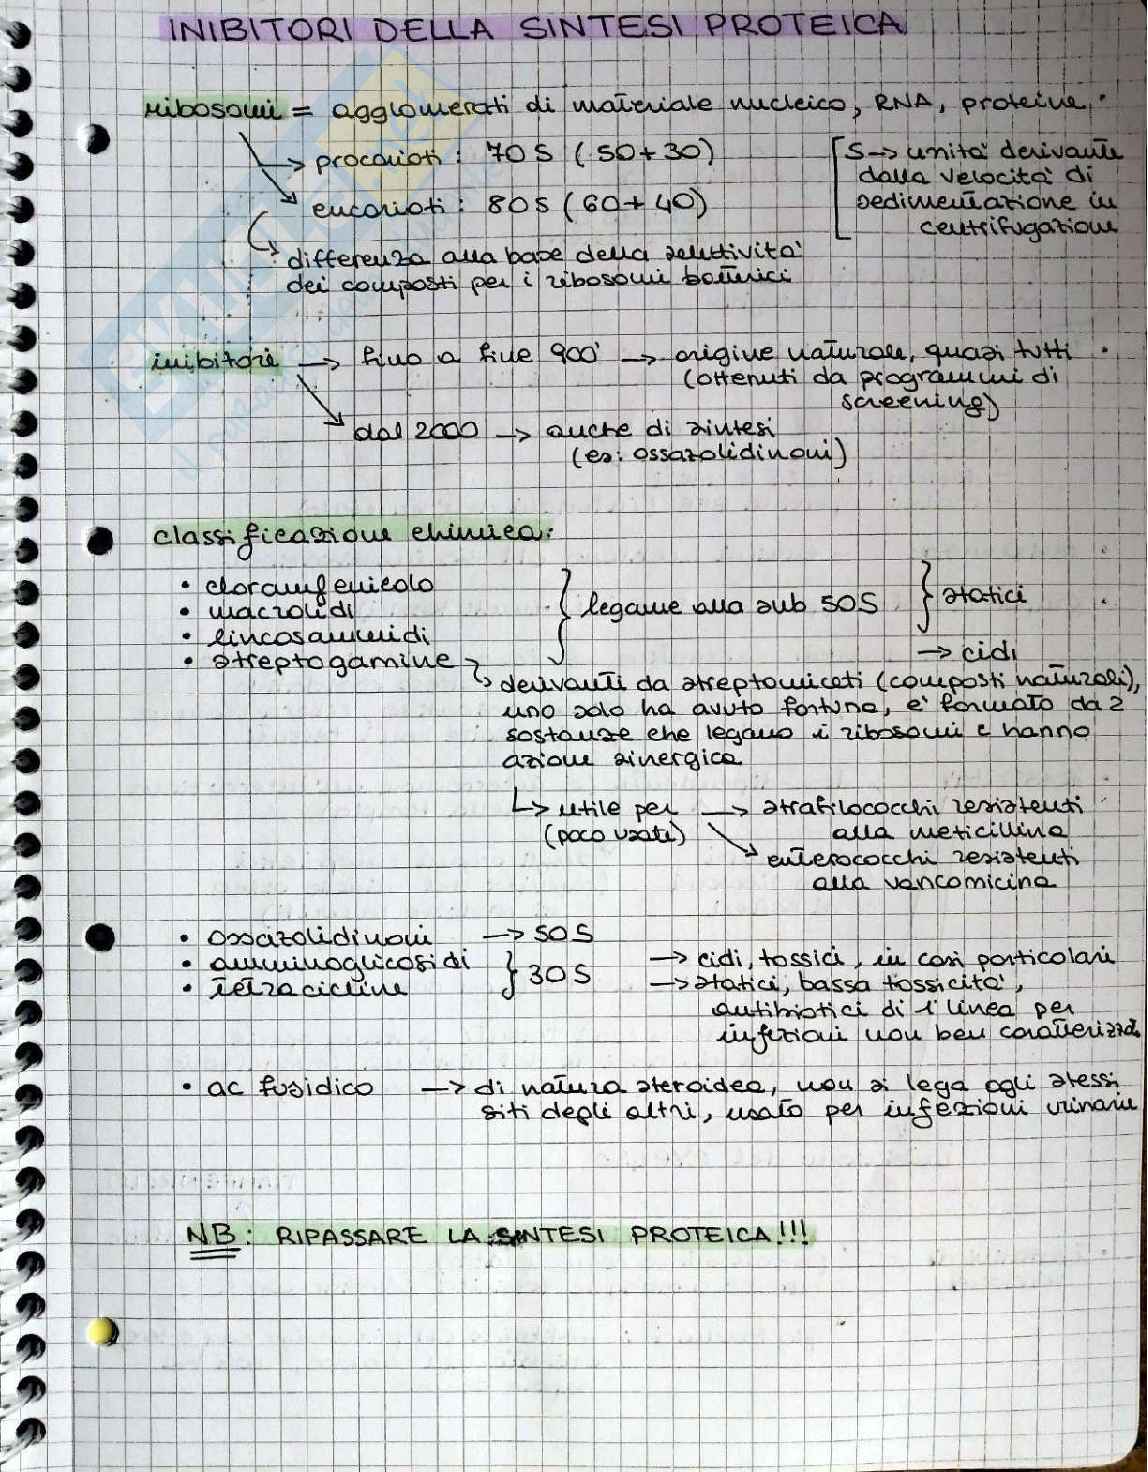 INIBITORI DELLA SINTESI PROTEICA
ribosomi = agglomerati di materiale nucleico, RNA, proteine
→ procarioti: 70S (50+30)
→ eucarioti: 80S (60+40)
[S → unità derivante
dalla velocità di
sedimentazione in
centrifugazione
differenza alla base della selettività
dei composti per i ribosomi batterici
inibitori → fino a fine 900' → origine naturale, quasi tutti
(ottenuti da programmi di
screening)
dal 2000 → anche di sintesi
(es: ossazolidinoni)
classificazione chimica:
• cloramfenicolo
• macrolidi
• lincosammidi
• streptogamine
} legame alla sub 50S } statici
→ cidi
derivanti da streptomiceti (composti naturali),
uno solo ha avuto fortuna, è formato da 2
sostanze che legano i ribosomi e hanno
azione sinergica
↳ utile per → strafilococchi resistenti
(poco usate) alla meticillina
enterococchi resistenti
alla vancomicina
• ossazolidinoni → 50S
• amminoglicosidi } 30S → cidi, tossici, in casi particolari
• tetracicline → statici, bassa tossicità,
antibiotici di 1ª linea per
infezioni non ben caratterizzate
• ac fusidico → di natura steroidea, non si lega agli stessi
siti degli altri, usato per infezioni urinarie
NB: RIPASSARE LA SINTESI PROTEICA!!!